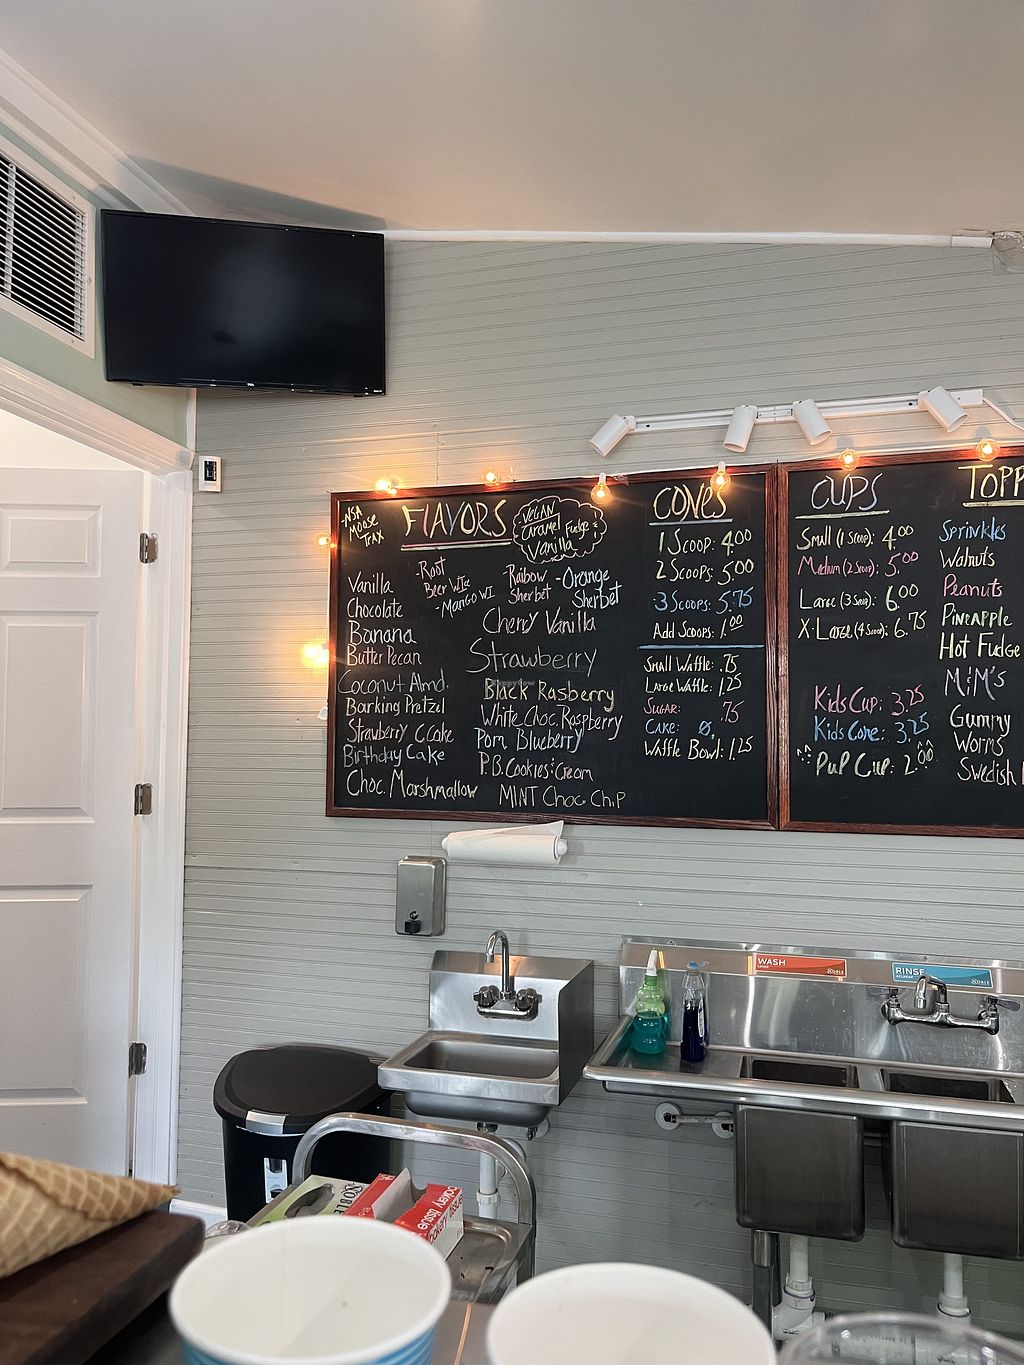 -NSA
MOOSE
TRAX
FLAVORS
VEGAN
Caramel Fudge &
Vanilla
Vanilla
Chocolate
Banana
Butter Pecan
Coconut Almd.
Barking Pretzel
Strawberry C.Cake
Birthday Cake
Choc. Marshmallow
-Root
Beer
-Mango WI
-Raibow
Sherbet
-Orange
Sherbet
Cherry Vanilla
Strawberry
Black Rasberry
White Choc. Raspberry
Pom Blueberry
P.B. Cookies & Cream
MINT Choc Chip
CONES
1 Scoop: 4.00
2 Scoops: 5.00
3 Scoops: 5.75
Add Scoops: 1.00
Small Waffle: .75
Large Waffle: 1.25
Sugar: .75
Cake: 0.
Waffle Bowl: 1.25
CUPS
Small (1 Scoop): 4.00
Medium (2 Scoop): 5.00
Large (3 Scoop): 6.00
X-Large (4 Scoop): 6.75
Kids Cup: 3.25
Kids Cone: 3.25
Pup Cup: 2.00
TOPP
Sprinkles
Walnuts
Peanuts
Pineapple
Hot Fudge
M&M's
Gummy
Worms
Swedish
HappyCow
TCL
WASH
NOBLE
RINSE
NOBLE
NOBLE
bakery tissue